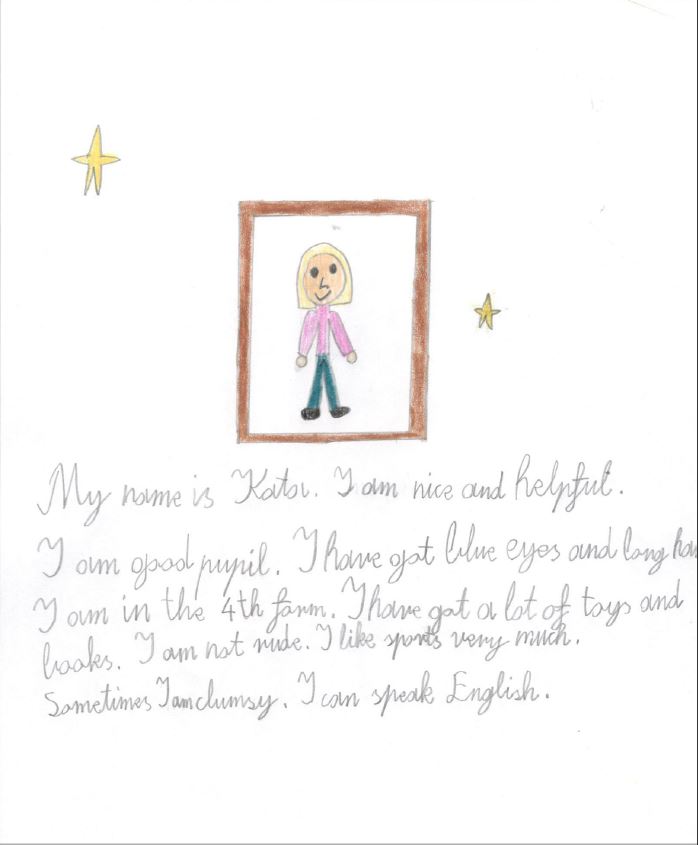 My name is Kata. I am nice and helpful.
I am good pupil. I have got blue eyes and long
I am in the 4th form. I have got a lot of toys and
books. I am not rude. I like sports very much.
Sometimes I am clumsy. I can speak English.